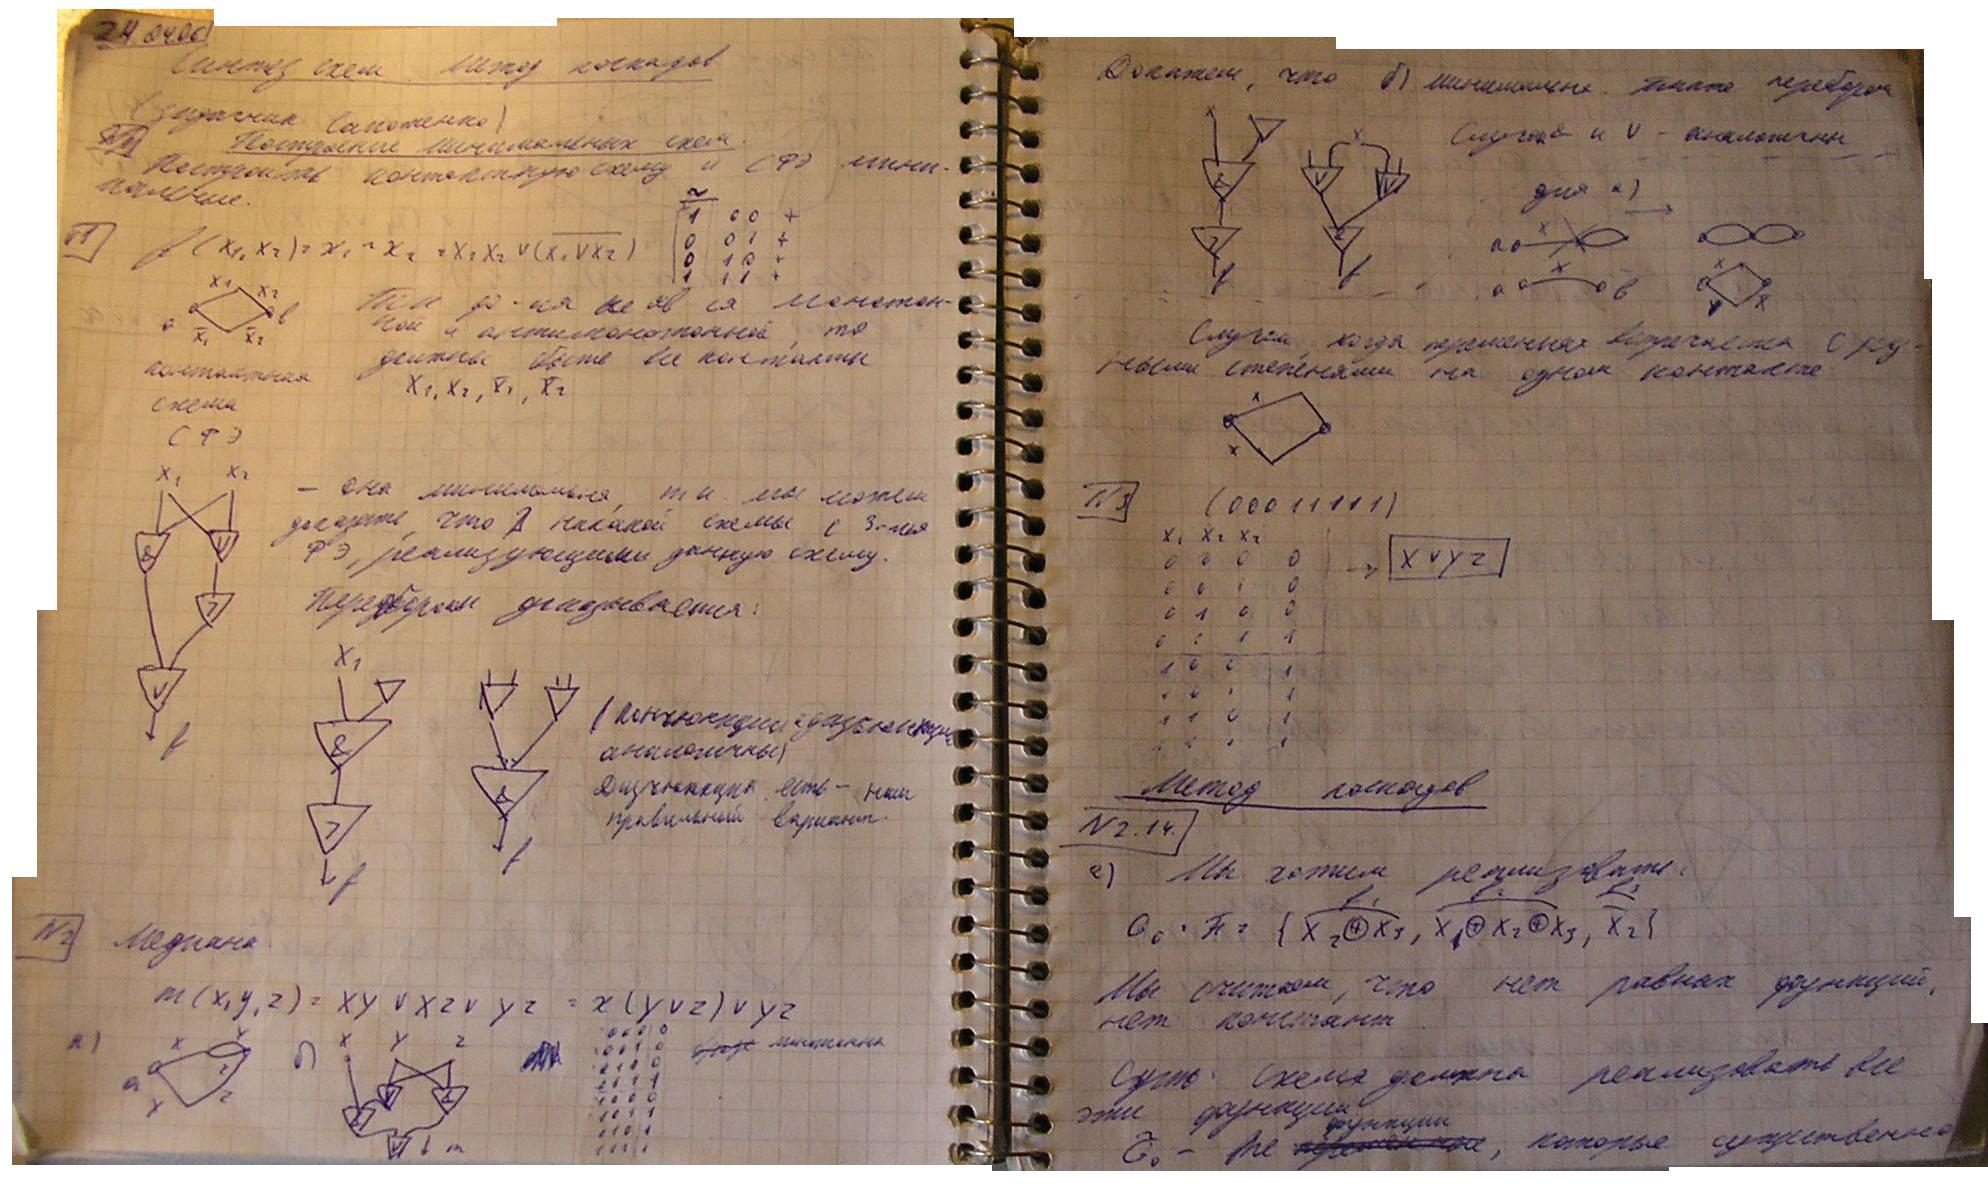 24.04.06
Синтез схем. Метод каскадов
(задачник Сапоженко)
Построение минимальных схем.
Построить контактную схему и СФЭ мини-
мальные.
N1
f(x₁,x₂)=x₁~x₂=x₁x₂∨(x̅₁̅∨̅x̅₂̅)
~
1 0 0 +
0 0 1 +
0 1 0 +
1 1 1 +
x₁ x₂
a b
x̅₁ x̅₂
Т.к. ф-ия не яв-ся монотон-
ной и антимонотонной, то
должны быть все контакты
x₁, x₂, x̅₁, x̅₂
контактная
схема
СФЭ
x₁ x₂
& ∨
¬
∨
f
– она минимальна, т.к. мы можем
доказать, что ∄ никакой схемы с 3-мя
ФЭ, реализующими данную схему.
Перебором доказывается:
x₁
&
¬
f
&
f
(конъюнкция и дизъюнкция
аналогичны)
Дизъюнкция есть – наш
правильный вариант.
N2 Медиана.
m(x,y,z) = xy ∨ xz ∨ yz = x(y∨z) ∨ yz
а) x y z a y z
б) x y z
m
0 0 0 0
0 0 1 0
0 1 0 0
0 1 1 1
1 0 0 0
1 0 1 1
1 1 0 1
1 1 1 1
монотонна
Докажем, что б) минимальна. перебором
x
&
¬
f
x
∨ ∨
f
Случаи & и ∨ – аналогичны
для а)
a x
a x b
x y x
Случай, когда переменная встречается с раз-
ными степенями на одном контакте
x
x
N3 (00011111)
x₁ x₂ x₃
0 0 0 0
0 0 1 0
0 1 0 0
0 1 1 1
1 0 0 1
1 0 1 1
1 1 0 1
1 1 1 1
→ x∨yz
Метод каскадов
N2.14.
е) Мы хотим реализовать:
f₁ f₂ f₃
G₀ : F = {x₂⊕x₃, x₁⊕x₂⊕x₃, x̅₂}
Мы считаем, что нет равных функций,
нет констант.
Суть: схема должна реализовать все
эти функции
G̃₀ – Все функции, которые существенно